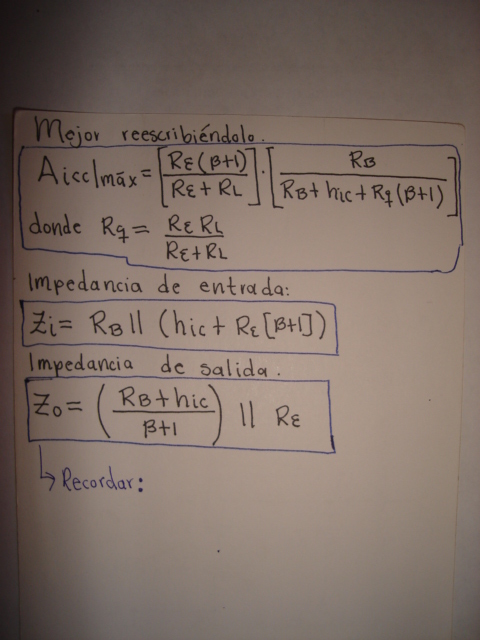 Mejor reescribiéndolo.
Aicc|máx = [RE(β+1) / RE + RL] · [RB / RB + hic + Rq(β+1)]
donde Rq = RE RL / RE + RL
Impedancia de entrada:
Zi = RB || (hic + RE[β+1])
Impedancia de salida.
Zo = (RB + hic / β+1) || RE
↳ Recordar: